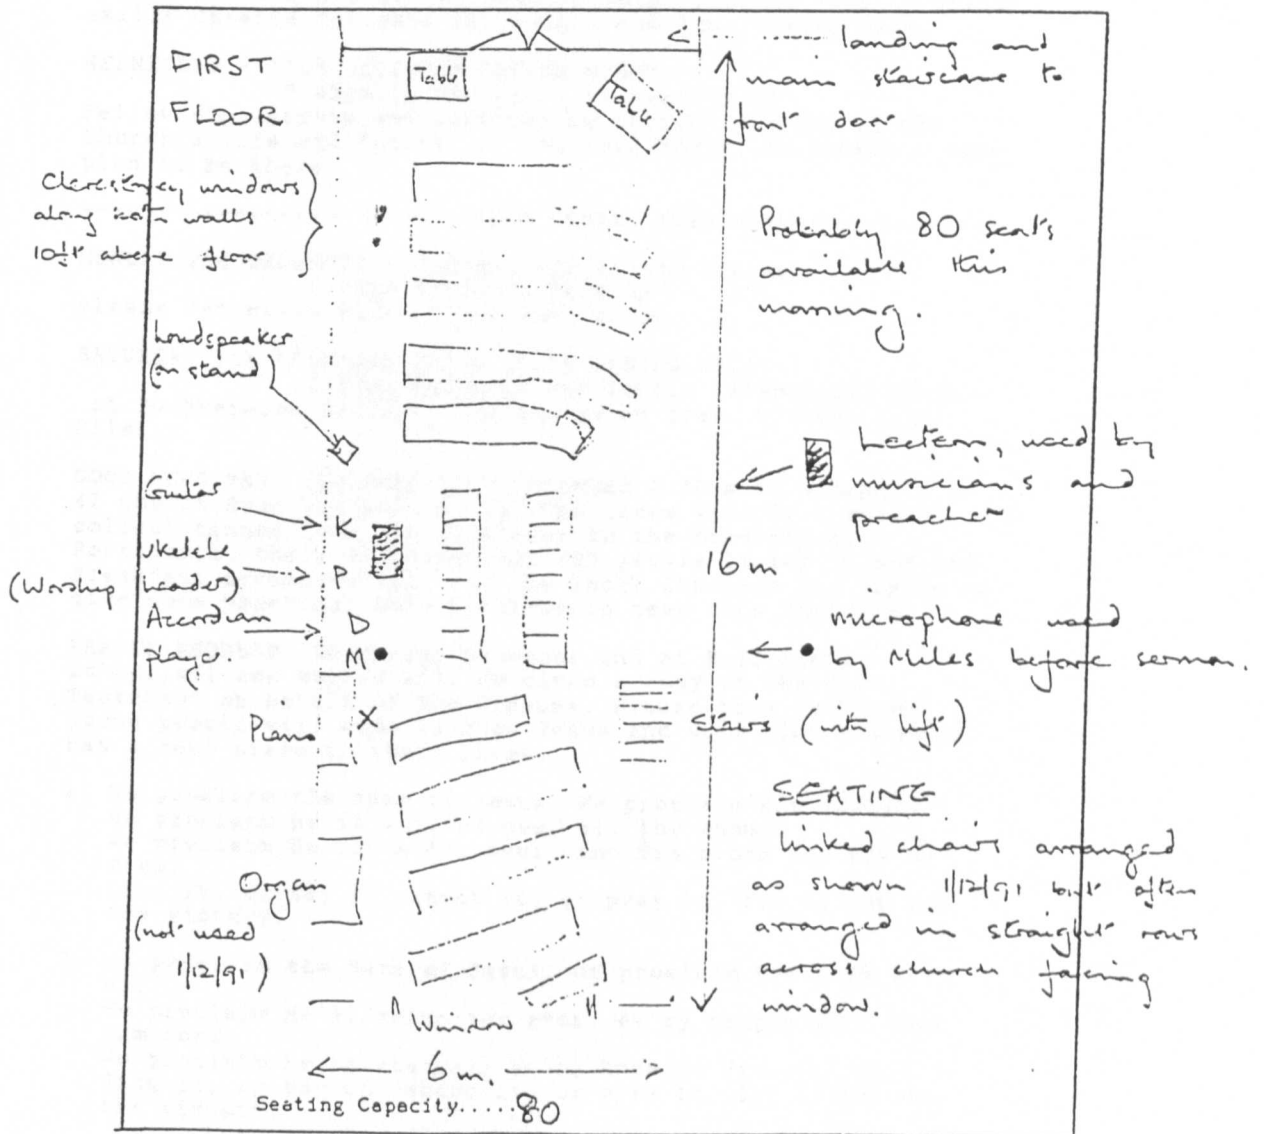 FIRST
FLOOR
Table
Table
landing and
main staircase to
front door
Clerestorey windows
along both walls
10½ft above floor
Probably 80 seats
available this
morning.
Loudspeaker
on stand
Lectern, used by
musicians and
preacher
Guitar
K
Ukelele
(Worship leader)
P
Accordian
player.
D
M
16 m.
microphone used
by Miles before sermon.
Piano
X
Stairs (into lift)
SEATING
Linked chairs arranged
as shown 1/12/91 but often
arranged in straight rows
across church facing
window.
Organ
(not used
1/12/91)
Window
6 m.
Seating Capacity.....80